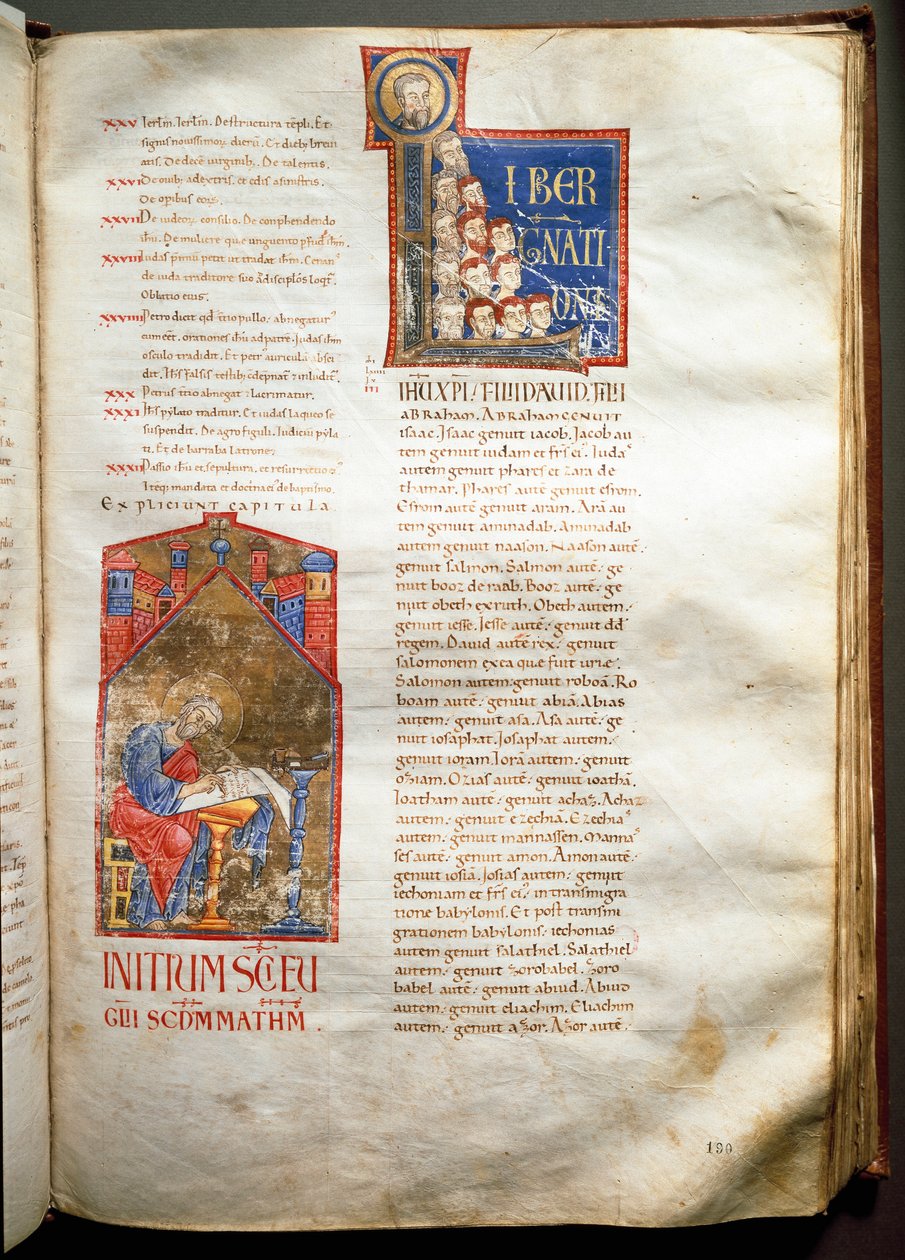 XXV Ierłm. Ierłm. Destructura tēpli. Et
signis nouissimorᷣ dierū. Et dieb; breui
atis. De decē uirginib;. De talentis.
XXVI De ouib; adextris. et edis asinistris.
De opibus eorᷣ.
XXVII De iudeorᷣ consilio. De conphendendo
ihū. De muliere que unguento pfud̄ ihm̄.
XXVIII Iudas p̄mū petit ut tradat ihm̄. Cenans
de iuda traditore suo ad discipłos loq̄t.
Oblatio eius.
XXVIIII Petro dicit qd t̄io pullo. abnegatur
cumeēt. orationes ihū adpatrē. Iudas ihm̄
osculo tradidit. Et petrᷣ auriculā absci
dit. Ih̄s falsis testib; c̄dēpnat᷑ et inludit᷑.
XXX Petrus t̄io abnegat et lacrimatur.
XXXI Ih̄s pylato traditur. Et iudas laqueo se
suspendit. De agro figuli. Iudiciū pyla
ti. Et de barraba latrone.
XXXII Passio ihū et sepultura. et resurrectio
Iteq; mandata et doctrina ei᷒ de baptismo.
EXPLICIUNT CAPITULA
INITIUM SC̄I EU
GLII SCD̄M MATHM̄.
LIBER
GNATI
ONIS
IHU XPI. FILII DAUID. FILII
ABRAHAM. ABRAHAM GENUIT
isaac. Isaac genuit iacob. Iacob au
tem genuit iudam et frs̄ ei᷒. Iudas
autem genuit phares et zara de
thamar. Phares autē genuit esrom.
Esrom autē genuit aram. Arā au
tem genuit aminadab. Aminadab
autem genuit naason. Naason autē.
genuit salmon. Salmon autē. ge
nuit booz de raab. Booz autē. ge
nuit obeth ex ruth. Obeth autem.
genuit iesse. Iesse autē. genuit dd̄
regem. Dauid autē rex. genuit
salomonem ex ea que fuit urie.
Salomon autem. genuit roboā. Ro
boam autē. genuit abiā. Abias
autem. genuit asa. Asa autē. ge
nuit iosaphat. Iosaphat autem.
genuit ioram. Iorā autem. genuit
oziam. Ozias autē. genuit ioathā.
Ioatham autē. genuit achaz. Achaz
autem. genuit ezechiā. Ezechias
autem. genuit mannassen. Manna
ses autē. genuit amon. Amon autē.
genuit iosiā. Iosias autem. genuit
iechoniam et frs̄ ei᷒. in transmigra
tione babylonis. Et post transmi
grationem babylonis. iechonias
autem genuit salathiel. Salathiel
autem. genuit zorobabel. Zoro
babel autē. genuit abiud. Abiud
autem. genuit eliachim. Eliachim
autem. genuit azor. Azor autē.
190